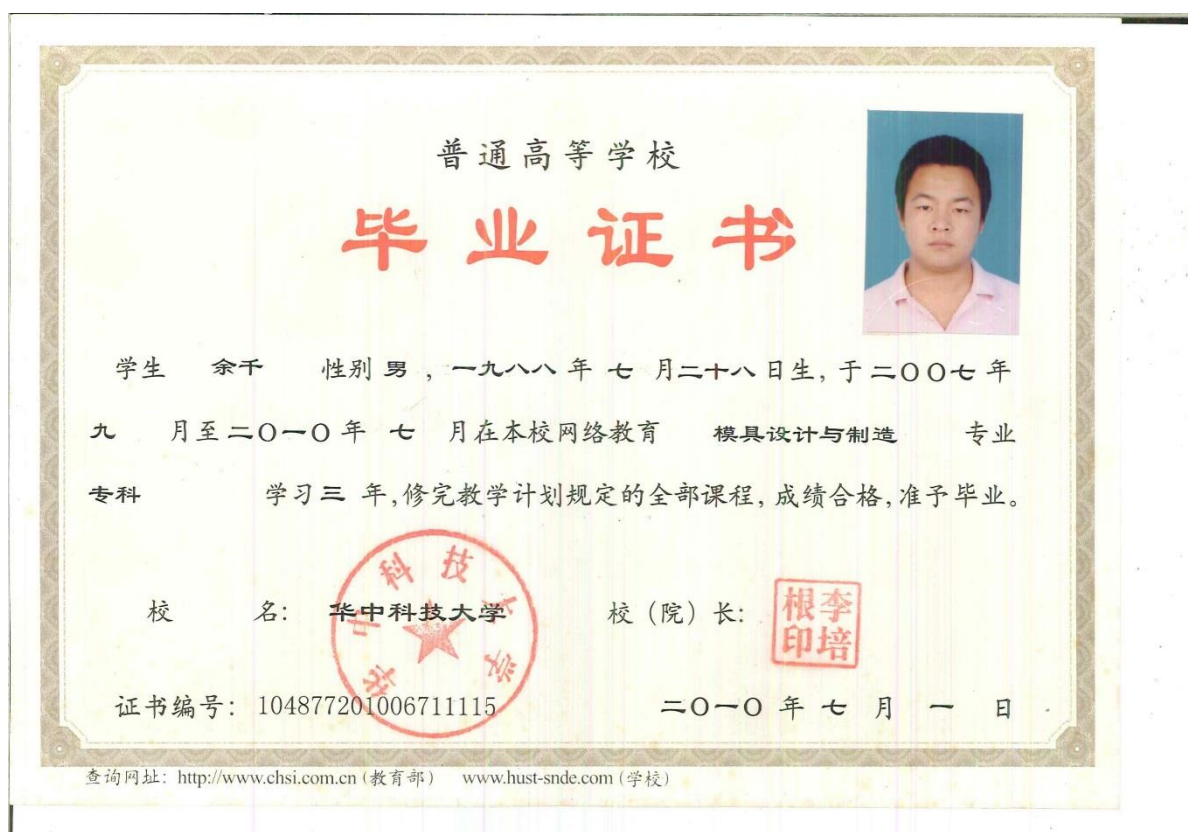 普通高等学校
毕业证书
学生 余千 性别 男 , 一九八八 年 七 月二十八日生, 于二〇〇七年
九 月至二〇一〇年 七 月在本校网络教育 模具设计与制造 专业
专科 学习三 年,修完教学计划规定的全部课程, 成绩合格, 准予毕业。
校 名: 华中科技大学 校 (院) 长: 李培根印
华中科技大学
证书编号: 104877201006711115 二〇一〇 年 七 月 一 日
查询网址: http://www.chsi.com.cn (教育部) www.hust-snde.com (学校)